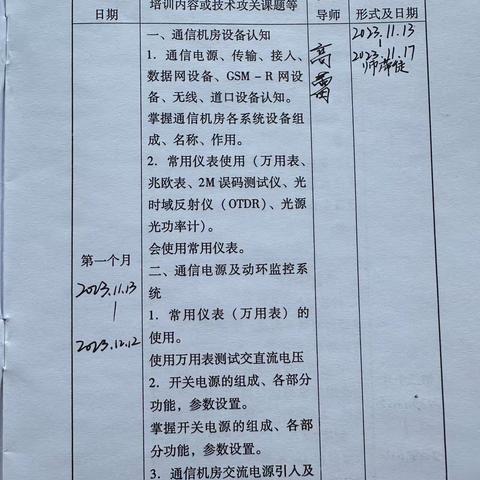 日期
培训内容或技术攻关课题等
导师
形式及日期
一、通信机房设备认知
1. 通信电源、传输、接入、
数据网设备、GSM-R 网设
备、无线、道口设备认知。
掌握通信机房各系统设备组
成、名称、作用。
2. 常用仪表使用（万用表、
兆欧表、2M 误码测试仪、光
时域反射仪（OTDR）、光源
光功率计）。
会使用常用仪表。
二、通信电源及动环监控系
统
1. 常用仪表（万用表）的
使用。
使用万用表测试交直流电压
2. 开关电源的组成、各部分
功能，参数设置。
掌握开关电源的组成、各部
分功能，参数设置。
3. 通信机房交流电源引入及
第一个月
2023.11.13
2023.12.12
高
2023.11.13
2023.11.17
师带徒